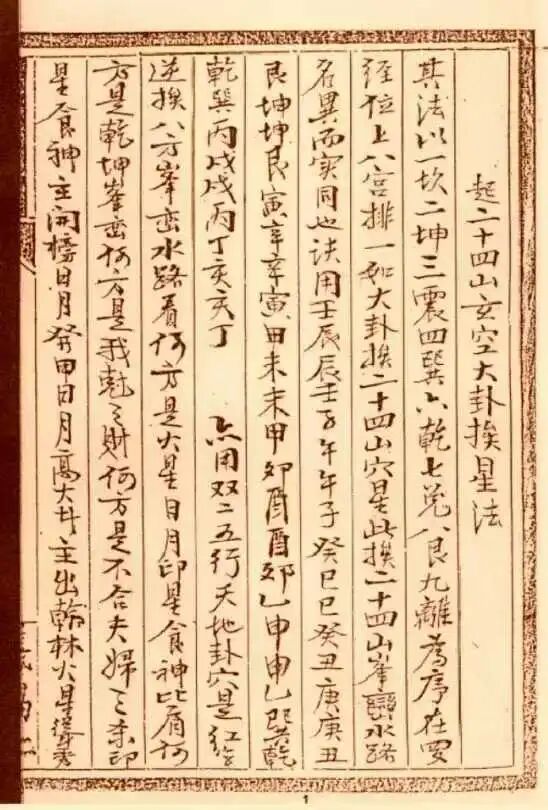 起二十四山玄空大卦挨星法
其法以一坎二坤三震四巽六乾七兌八艮九離為序在罗
径位上八宮排一如大卦挨二十四山穴星此挨二十四山峯巒水路
名異而实同也诀用壬辰辰壬子午午子癸巳巳癸丑庚庚丑
艮坤坤艮寅辛辛寅甲未未甲卯酉酉卯乙申申乙巽乾
乾巽丙戌戌丙丁亥亥丁 亦用双二五行天地卦穴是红
逆挨八方峯峦水路看何方是火星日月印星食神比肩何
方是乾坤峯峦何方是我尅之財何方是不合夫婦之印
星食神主開榜日月發甲日月高大主出翰林火星秀
1